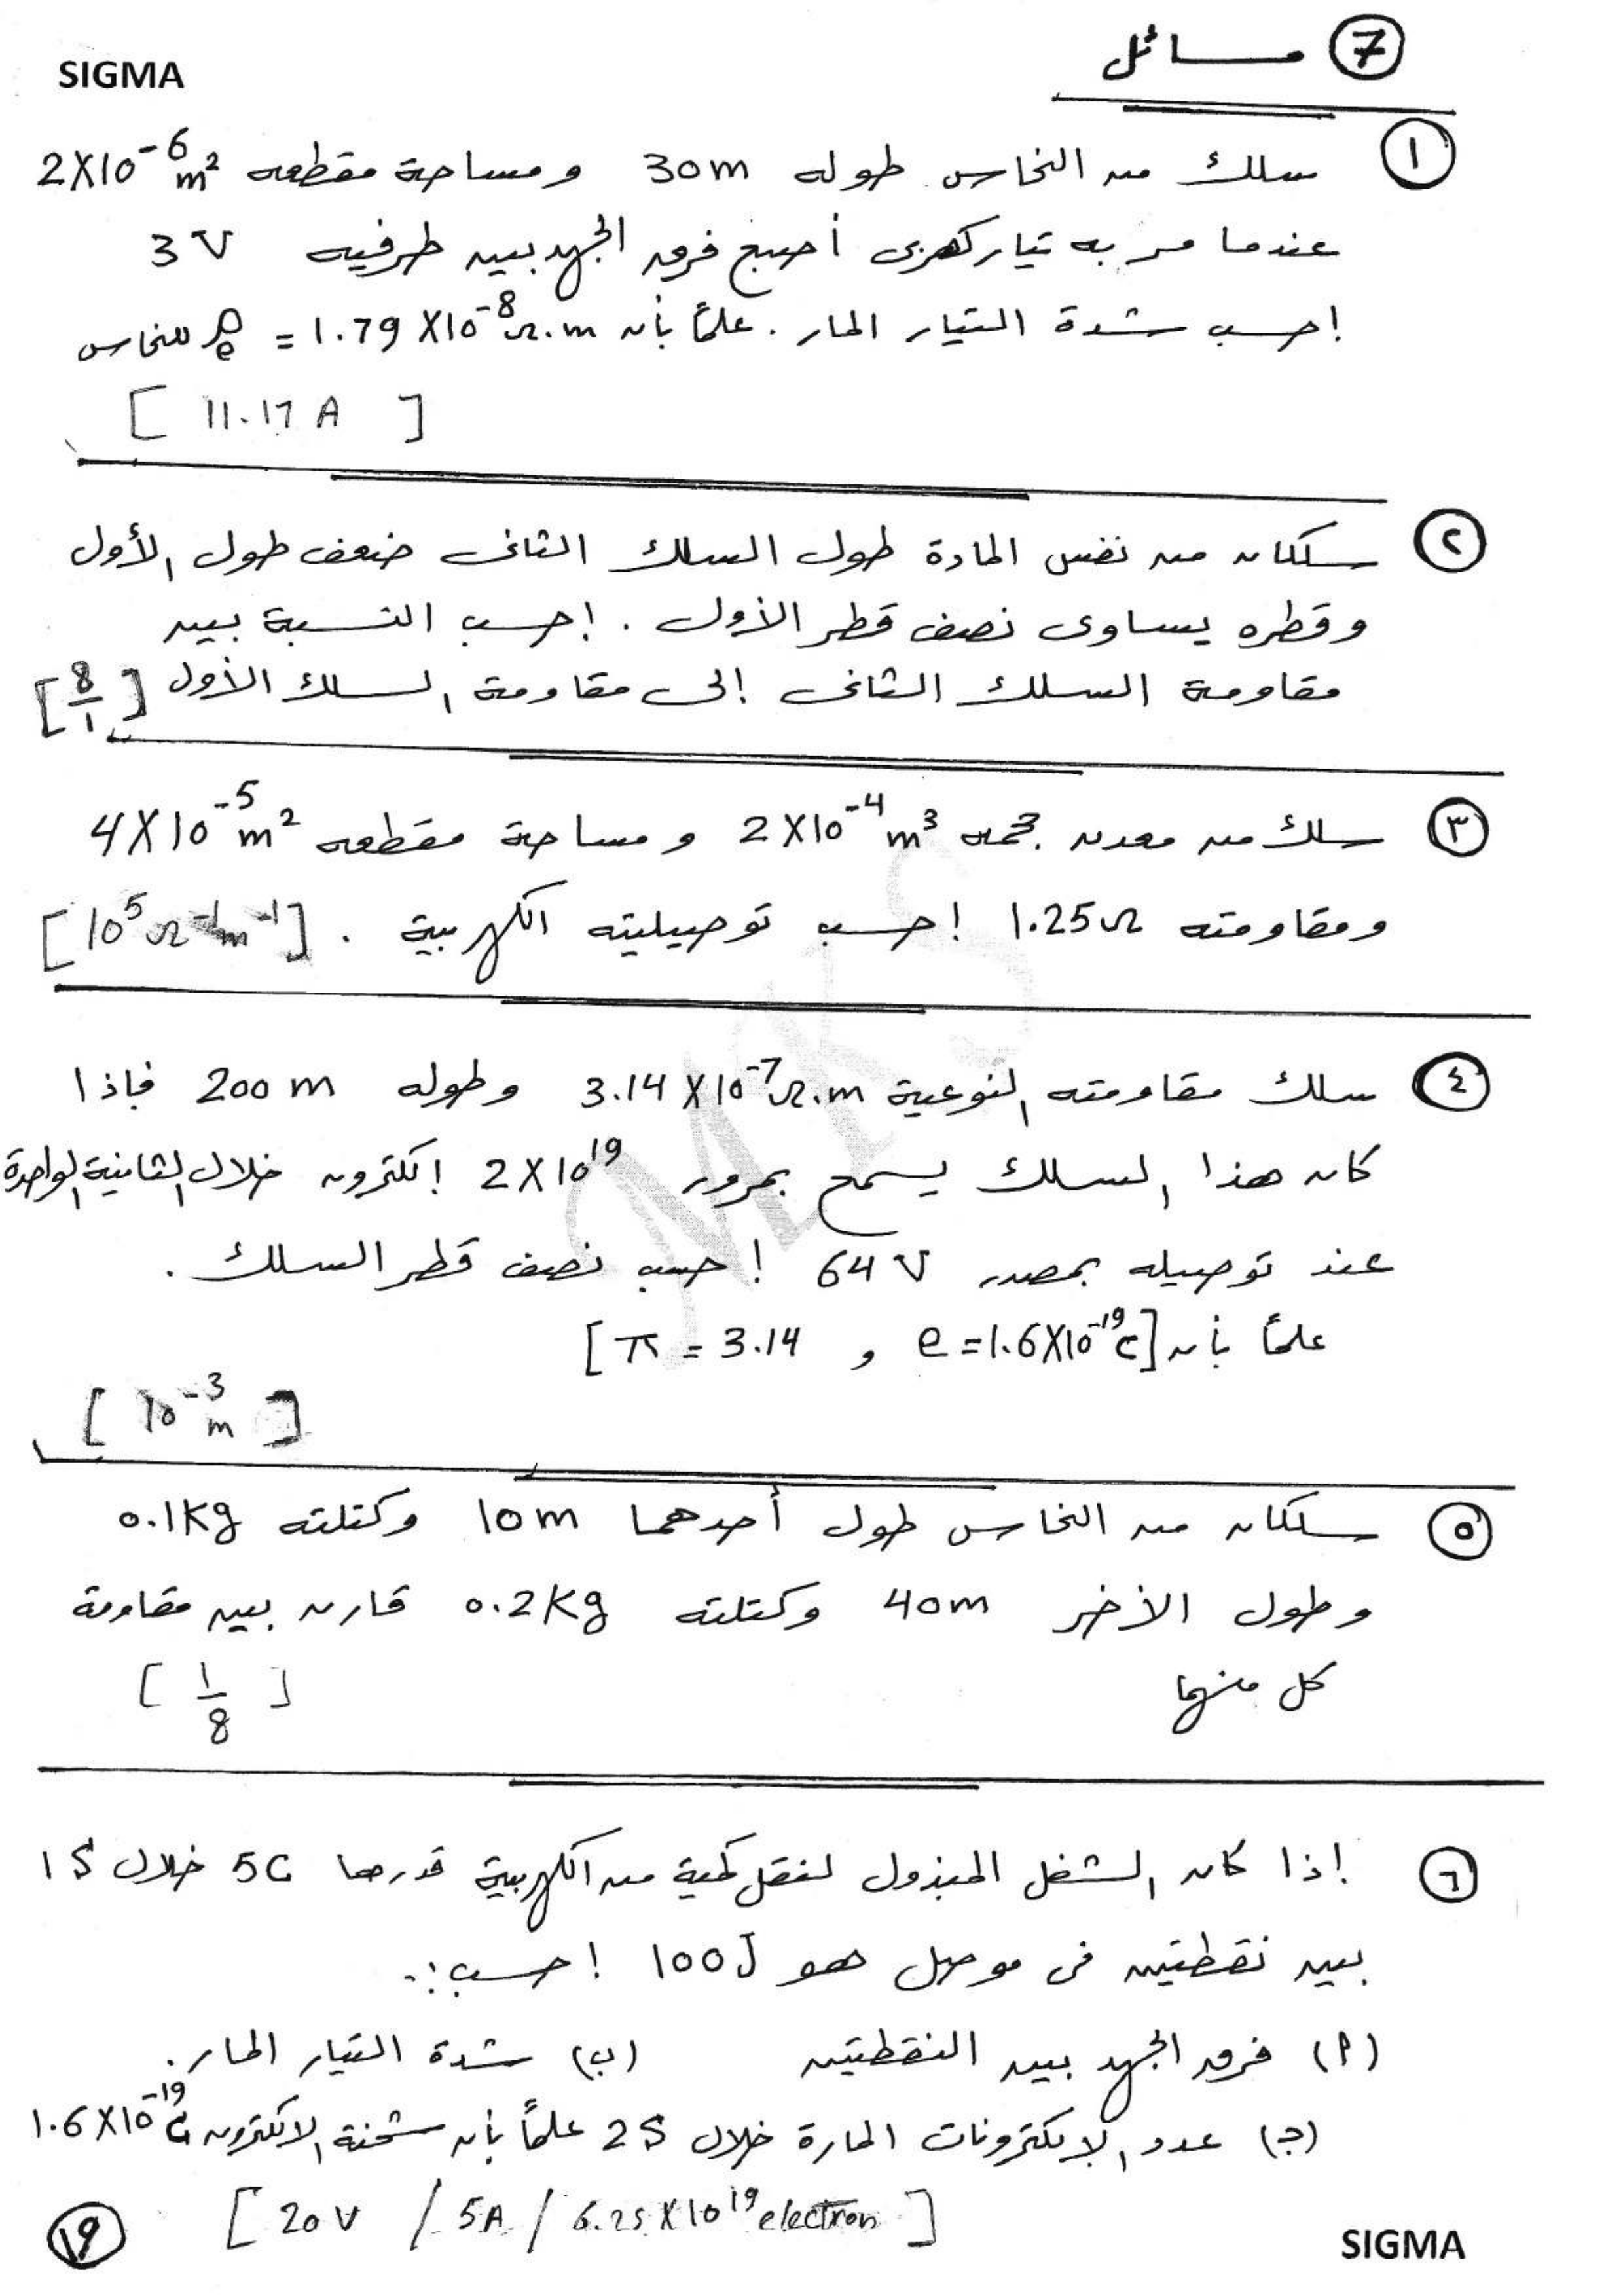 SIGMA
7 مسائل
١ سلك من النحاس طوله 30m ومساحة مقطعه 2X10⁻⁶ m²
عندما مر به تيار كهربى أصبح فرق الجهد بين طرفيه 3V
إحسب شدة التيار المار. علماً بأن 1.79X10⁻⁸Ω.m = ρe للنحاس
[ 11.17 A ]
٢ سلكان من نفس المادة طول السلك الثانى ضعف طول الأول
وقطره يساوى نصف قطر الأول. إحسب النسبة بين
مقاومة السلك الثانى إلى مقاومة السلك الأول [8/1]
٣ سلك من معدن حجمه 2X10⁻⁴ m³ ومساحة مقطعه 4X10⁻⁵ m²
ومقاومته 1.25Ω إحسب توصيليته الكهربية. [10⁵Ω⁻¹m⁻¹]
MKS
٤ سلك مقاومته النوعية 3.14X10⁻⁷Ω.m وطوله 200m فإذا
كان هذا السلك يسمح بمرور 2X10¹⁹ إلكترون خلال الثانية الواحدة
عند توصيله بمصدر 64V إحسب نصف قطر السلك.
علماً بأن [e=1.6X10⁻¹⁹C و π = 3.14]
[ 10⁻³ m ]
٥ سلكان من النحاس طول أحدهما 10m وكتلته 0.1Kg
وطول الأخر 40m وكتلته 0.2Kg قارن بين مقاومة
كل منهما [ 1/8 ]
٦ إذا كان الشغل المبذول لنقل كمية من الكهربية قدرها 5C خلال 1S
بين نقطتين فى موصل هو 100J إحسب:.
(أ) فرق الجهد بين النقطتين (ب) شدة التيار المار.
(ج) عدد الإلكترونات المارة خلال 2S علماً بأن شحنة الإلكترون 1.6X10⁻¹⁹C
[ 20V / 5A / 6.25X10¹⁹ electron ]
١٩
SIGMA